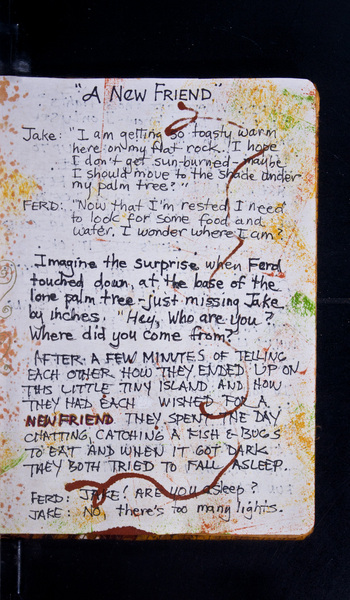 "A New Friend"
Jake: "I am getting so toasty warm
here on my flat rock. I hope
I don't get sun-burned-maybe
I should move to the shade under
my palm tree?"
FERD: "Now that I'm rested I need
to look for some food and
water. I wonder where I am?
Imagine the surprise when Ferd
touched down at the base of the
lone palm tree-just missing Jake
by inches. "Hey, Who are you?
Where did you come from?"
AFTER A FEW MINUTES OF TELLING
EACH OTHER HOW THEY ENDED UP ON
THIS LITTLE TINY ISLAND AND HOW
THEY HAD EACH WISHED FOR A
NEW FRIEND THEY SPENT THE DAY
CHATTING, CATCHING A FISH & BUGS
TO EAT AND WHEN IT GOT DARK
THEY BOTH TRIED TO FALL ASLEEP..
FERD: JAKE! ARE you asleep?
JAKE: No there's too many lights.